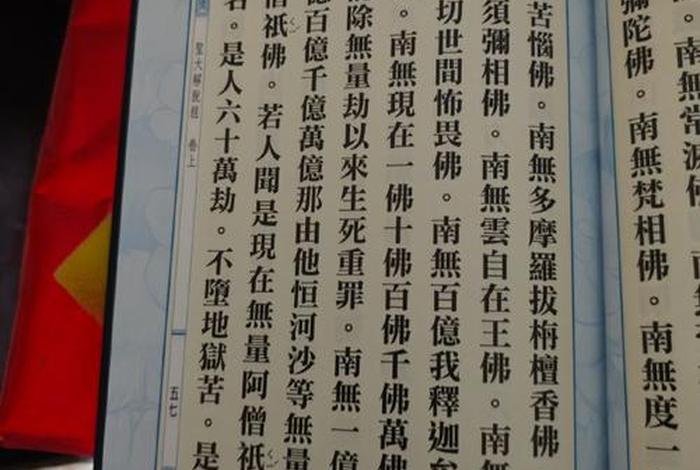 。南無常
彌陀佛。南無梵相佛。南無度一
苦惱佛。南無多摩羅拔栴檀香佛
須彌相佛。南無雲自在王佛。南無
切世間怖畏佛。南無百億我釋迦牟
。南無現在一佛十佛百佛千佛萬佛
除無量劫以來生死重罪。南無一億
億百億千億萬億那由他恒河沙等無量
僧祇佛。若人聞是現在無量阿僧祇
名。是人六十萬劫。不墮地獄苦。是
聖大解脫經 卷上
五七